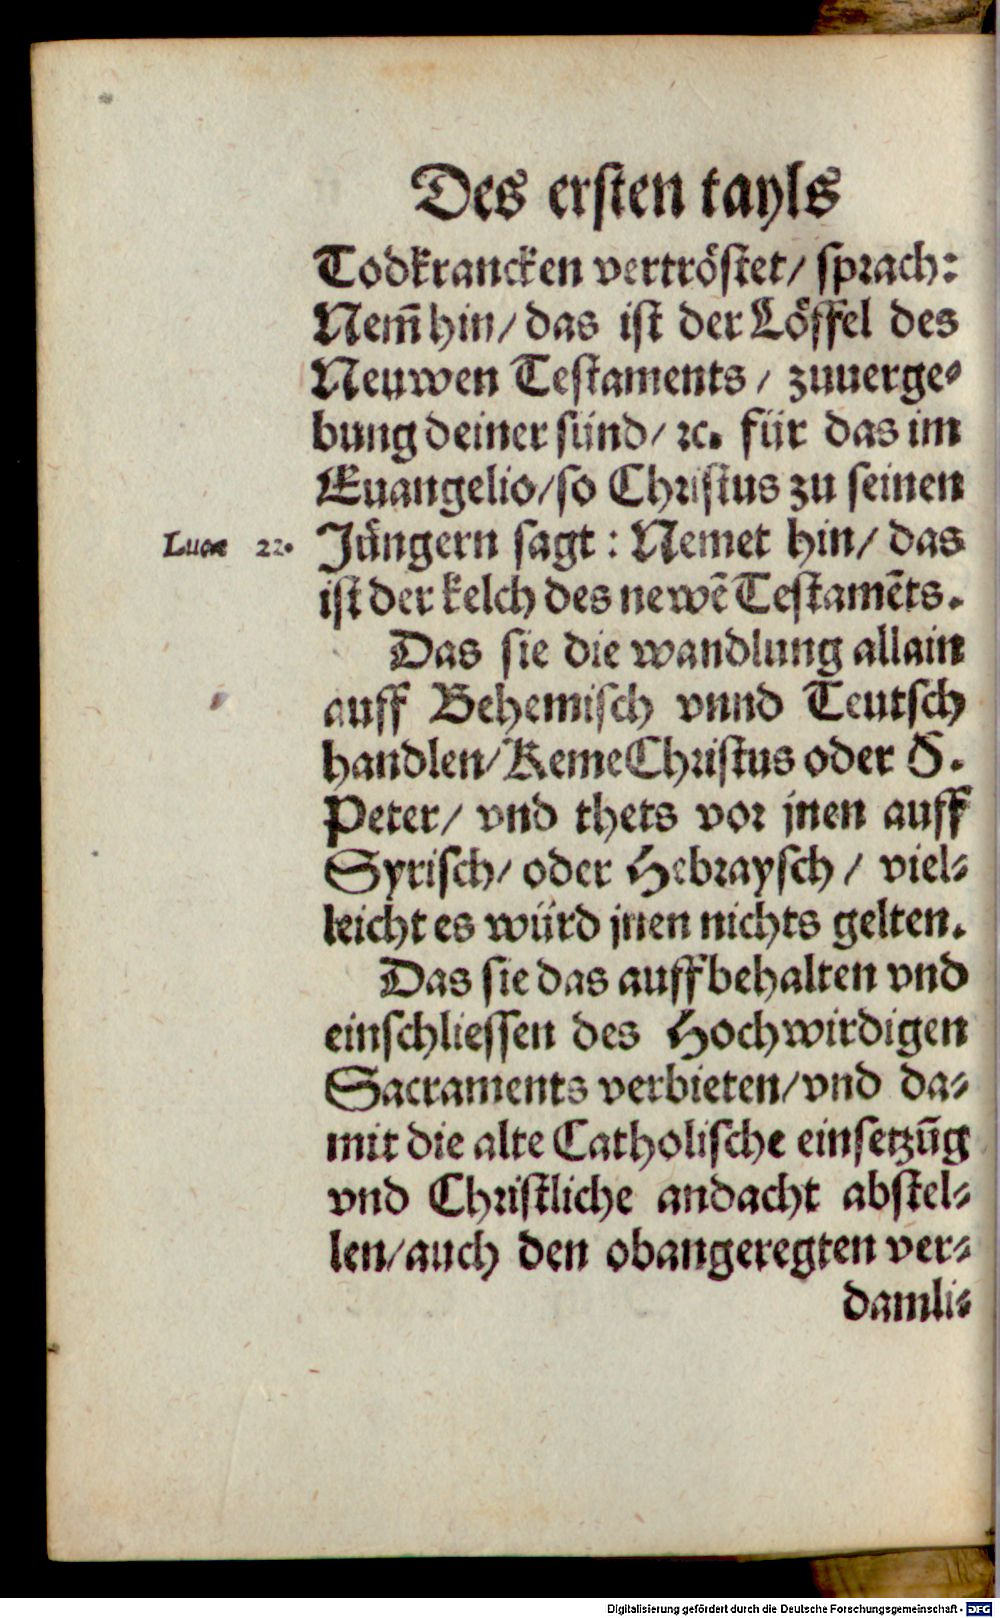 Des ersten tayls
Todkrancken vertröstet/ sprach:
Nem̃ hin/ das ist der Löffel des
Neuwen Testaments/ zuuerge⸗
bung deiner sünd/ ꝛc. für das im
Euangelio/ so Christus zu seinen
Luce 22. Jüngern sagt: Nemet hin/ das
ist der kelch des newē Testamēts.
Das sie die wandlung allain
auff Behemisch vnnd Teutsch
handlen/ Keme Christus oder S.
Peter/ vnd thets vor jnen auff
Syrisch/ oder Hebraysch/ viel⸗
leicht es würd jnen nichts gelten.
Das sie das auffbehalten vnd
einschliessen des Hochwirdigen
Sacraments verbieten/ vnd da⸗
mit die alte Catholische einsetzūg
vnd Christliche andacht abstel⸗
len/ auch den obangeregten ver⸗
damli⸗
Digitalisierung gefördert durch die Deutsche Forschungsgemeinschaft - DFG